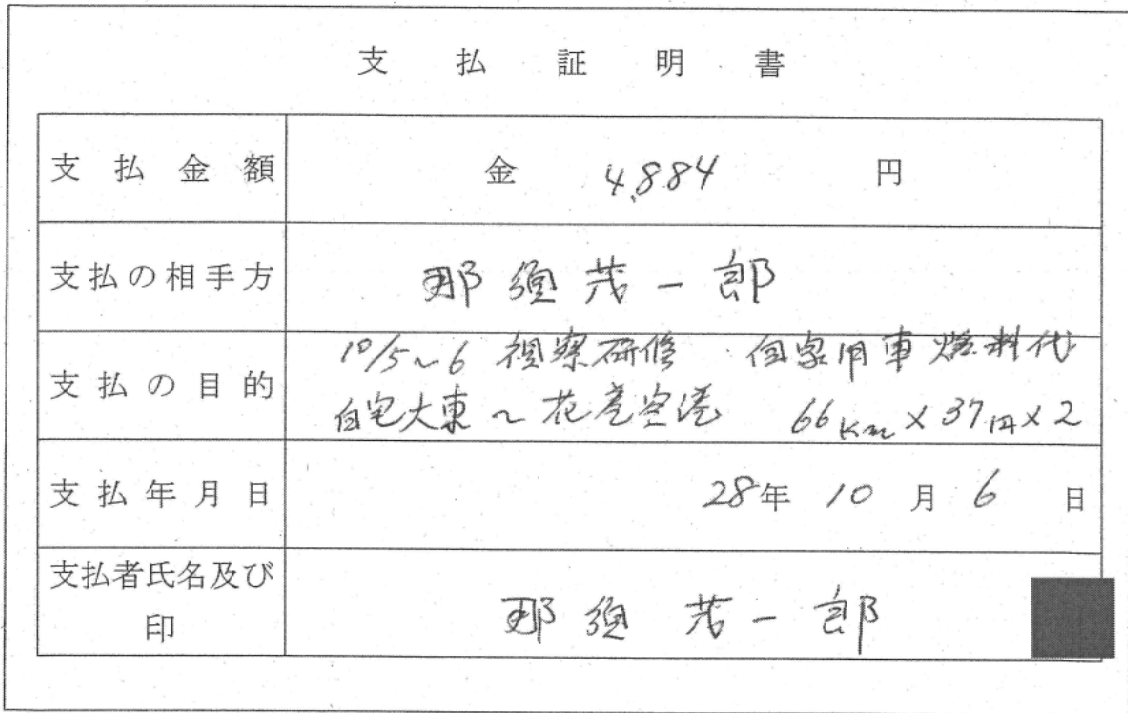 支払証明書
支払金額 金 4,884 円
支払の相手方 那須茂一郎
支払の目的 10/5~6 視察研修 自家用車燃料代
自宅大東~花巻空港 66km×37円×2
支払年月日 28年 10月 6日
支払者氏名及び
印 那須茂一郎